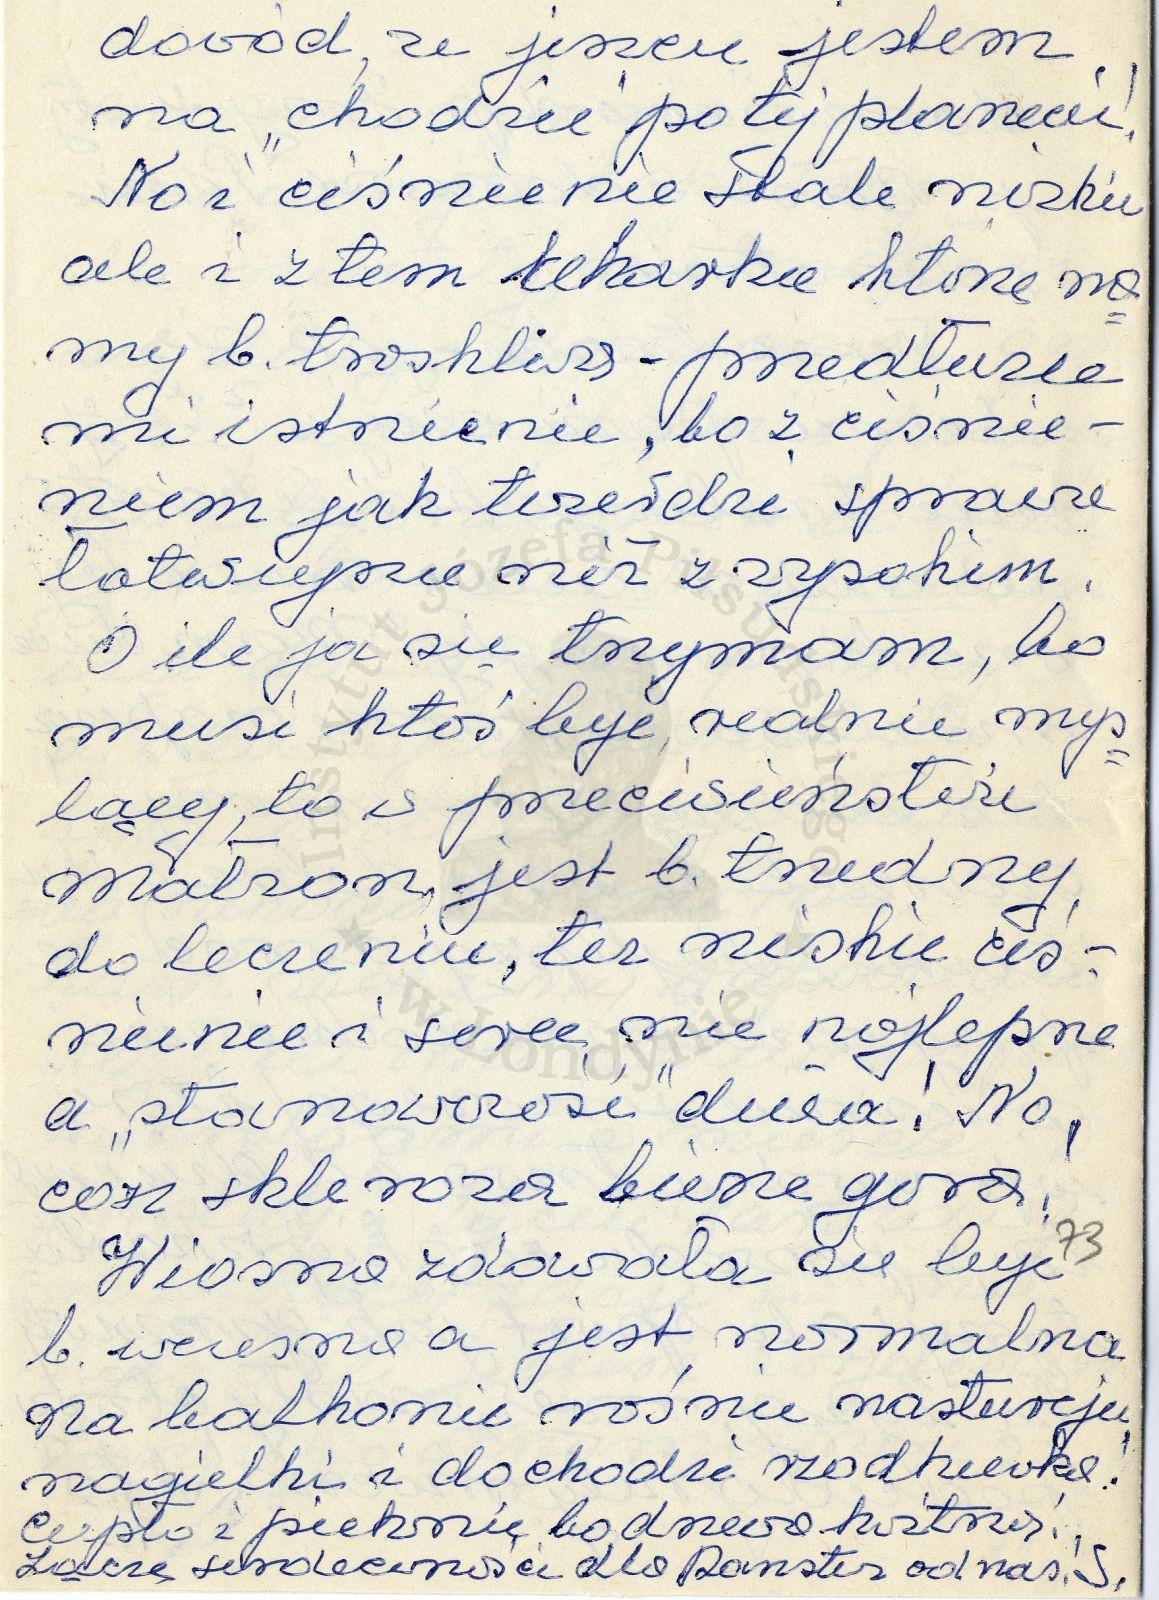 dowód, że jeszcze jestem
na „chodzie" po tej planecie!
No i ciśnienie stale nizkie
ale i z tem lekarka którą ma
my b. troskliwą - przedłuża
mi istnienie, bo z ciśnie-
niem jak twierdzi sprawa
łatwiejsza niż z wysokim.
O ile ja się trzymam, bo
musi ktoś być realnie myś
lący, to w przeciwieństwie
małżon. jest b. trudny
do leczenia, też niskie ciś-
nienie i serce nie najlepsze
a „stanowczość" duża! No,
cóż skleroza bierze górę!
73
Wiosna zdawała się być
b. wczesna a jest normalna
na balkonie rośnie nasturcja
nagietki i dochodzi rzodkiewka!
Ciepło i pięknie bo drzewa kwitną!
Łączę serdeczności dla Państwa od nas. S.
Instytut Józefa Piłsudskiego
w Londynie